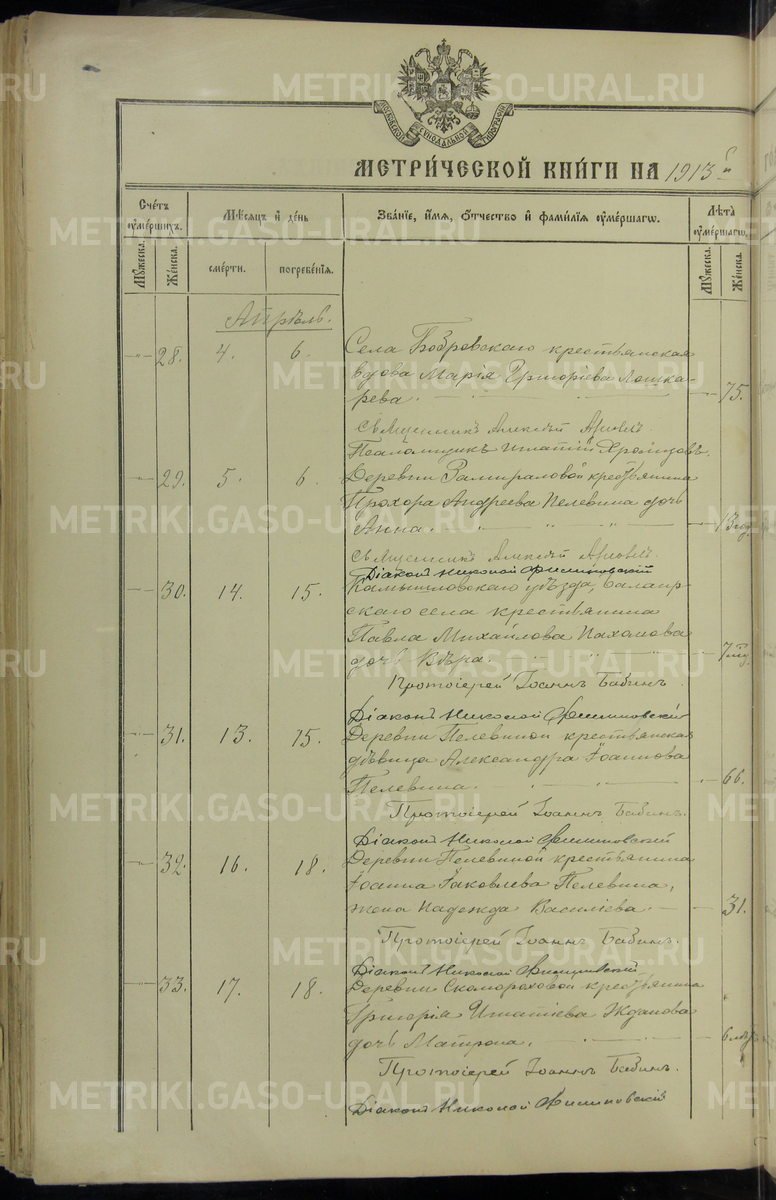 МОСКОВСКОЙ СИНОДАЛЬНОЙ ТИПОГРАФІИ
МЕТРИЧЕСКОЙ КНИГИ НА 1913 г.
Счетъ умершихъ.
Мѣсяцъ и день
Званіе, имя, отчество и фамилія умершаго.
Лѣта умершаго.
Мужеска. Женска.
смерти. погребенія.
Мужеска. Женска.
Апрѣль.
28. 4. 6. Села Бобровскаго крестьянская
вдова Марія Григоріева Лошка-
рева. 75.
Священникъ Алексѣй
Псаломщикъ Игнатій
29. 5. 6. Деревни Замираловой крестьянина
Прохора Андреева Пелевина дочь
Анна. 13 год.
Священникъ Алексѣй
Діаконъ Николай Филипповскій
30. 14. 15. Камышловскаго уѣзда, Балаир-
скаго села крестьянина
Павла Михайлова Пахомова
дочь Вѣра. 7
Протоіерей Іоаннъ Бабинъ.
Діаконъ Николай Филипповскій
31. 13. 15. Деревни Пелевиной крестьянская
дѣвица Александра Іоаннова
Пелевина. 66.
Протоіерей Іоаннъ Бабинъ.
Діаконъ Николай Филипповскій
32. 16. 18. Деревни Пелевиной крестьянина
Іоанна Іаковлева Пелевина,
жена Надежда Василіева. 31.
Протоіерей Іоаннъ Бабинъ.
Діаконъ Николай Филипповскій
33. 17. 18. Деревни Скомороховой крестьянина
Григорія Игнатіева Жданова
дочь Матрона. 6
Протоіерей Іоаннъ Бабинъ.
Діаконъ Николай Филипповскій
METRIKI.GASO-URAL.RU